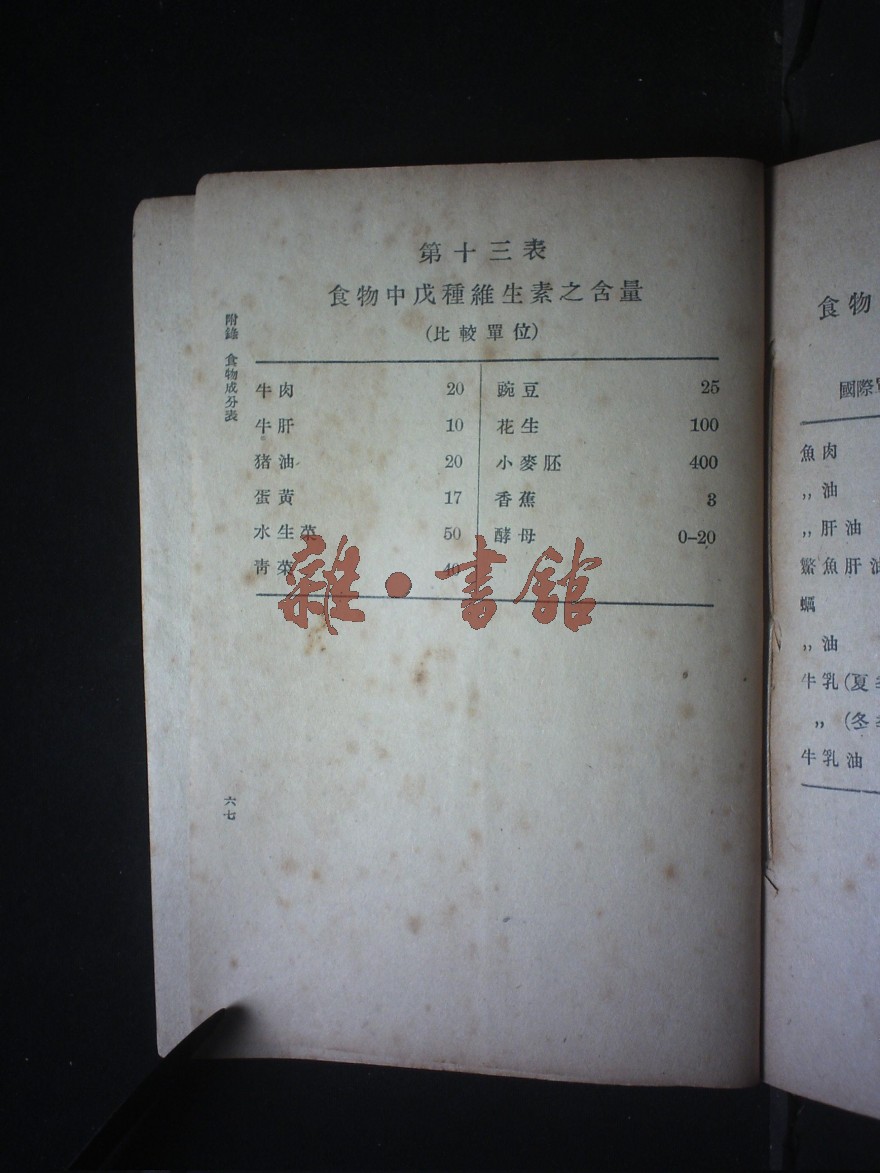 第十三表
食物中戊種維生素之含量
(比較單位)
附錄 食物成分表
牛肉 20 豌豆 25
牛肝 10 花生 100
豬油 20 小麥胚 400
蛋黃 17 香蕉 3
水生菜 50 酵母 0–20
靑菜 40
雜·書館
六七
食物
國際單
魚肉
,,油
,,肝油
魚肝油
蠣
,,油
牛乳(夏
,, (冬
牛乳油